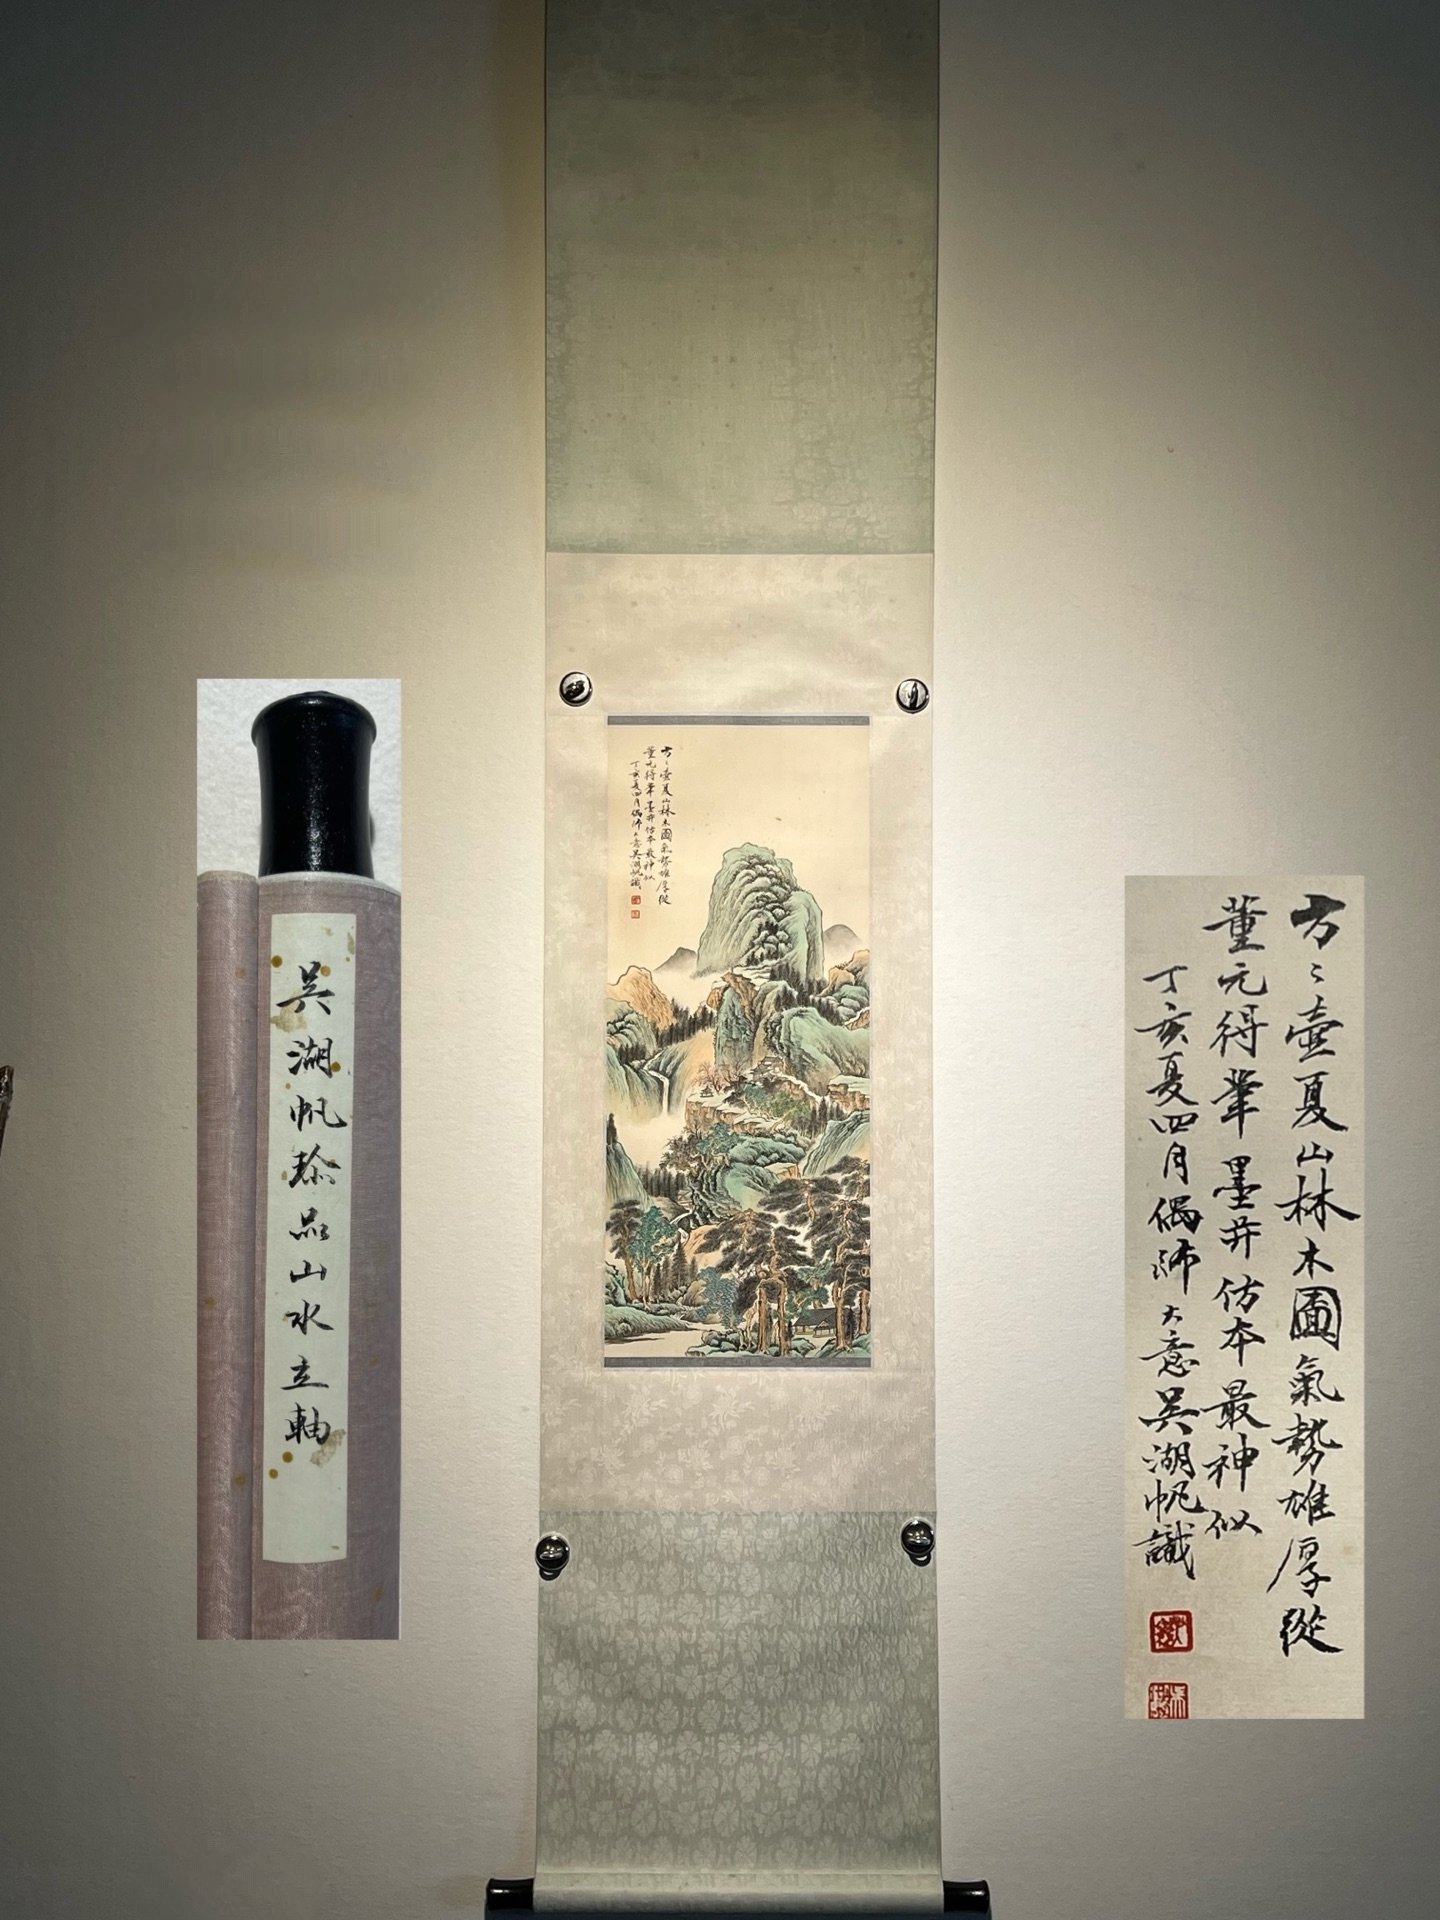 吳湖帆珍品山水立軸
方〻壺夏山林木圖氣勢雄厚從
董元得筆墨井仿本最神似
丁亥夏四月偶師大意吳湖帆識
方〻壺夏山林木圖氣勢雄厚從
董元得筆墨井仿本最神似
丁亥夏四月偶師大意吳湖帆識